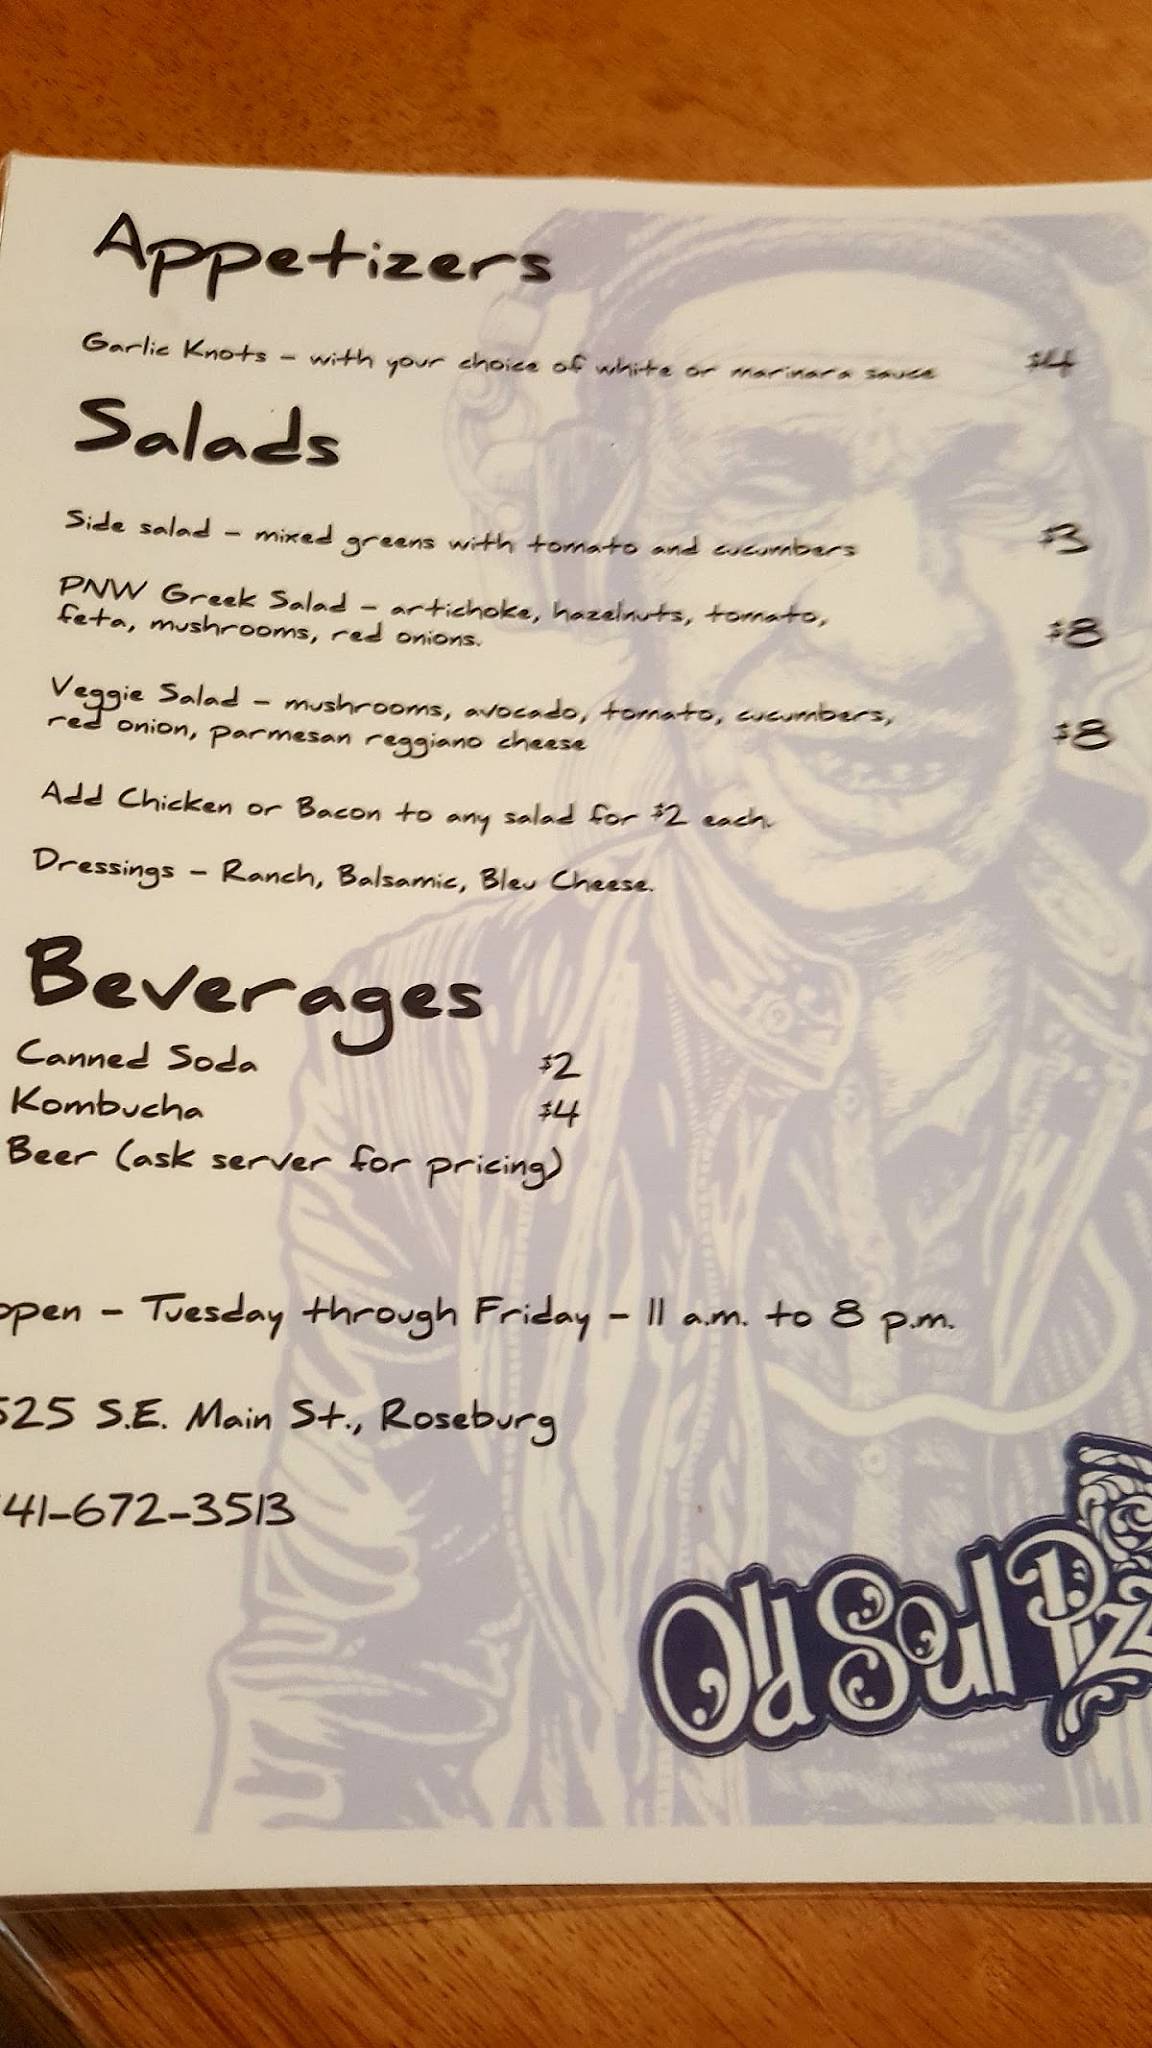 Appetizers
Garlic Knots - with your choice of white or marinara sauce $4
Salads
Side salad - mixed greens with tomato and cucumbers $3
PNW Greek Salad - artichoke, hazelnuts, tomato,
feta, mushrooms, red onions. $8
Veggie Salad - mushrooms, avocado, tomato, cucumbers,
red onion, parmesan reggiano cheese $8
Add Chicken or Bacon to any salad for $2 each.
Dressings - Ranch, Balsamic, Bleu Cheese.
Beverages
Canned Soda $2
Kombucha $4
Beer (ask server for pricing)
open - Tuesday through Friday - 11 a.m. to 8 p.m.
525 S.E. Main St., Roseburg
41-672-3513
Old Soul Pizz